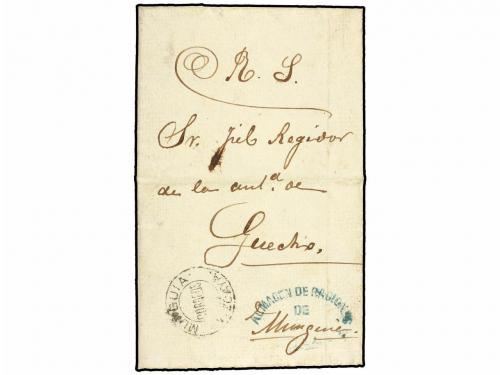 R. S.
Sr. Fiel Regidor
de la ant.ª de
Guecho.
MUNGUIA
VIZCAYA
ALMACEN DE RACIONES
DE
Munguia